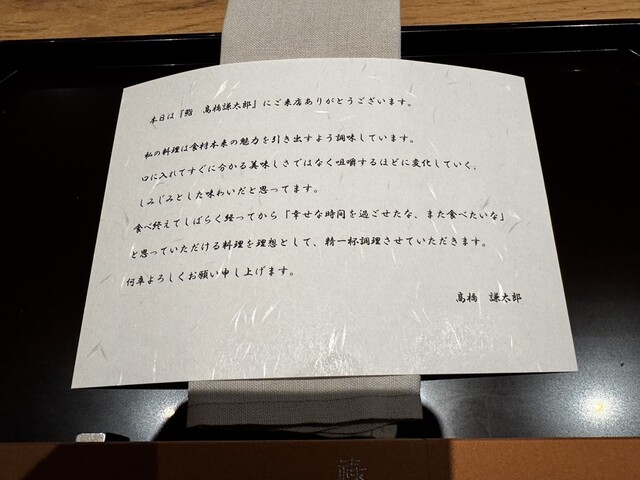 本日は『鮨　髙橋謙太郎』にご来店ありがとうございます。
私の料理は食材本来の魅力を引き出すよう調味しています。
口に入れてすぐに分かる美味しさではなく咀嚼するほどに変化していく、
しみじみとした味わいだと思ってます。
食べ終えてしばらく経ってから「幸せな時間を過ごせたな、また食べたいな」
と思っていただける料理を理想として、精一杯調理させていただきます。
何卒よろしくお願い申し上げます。
髙橋　謙太郎